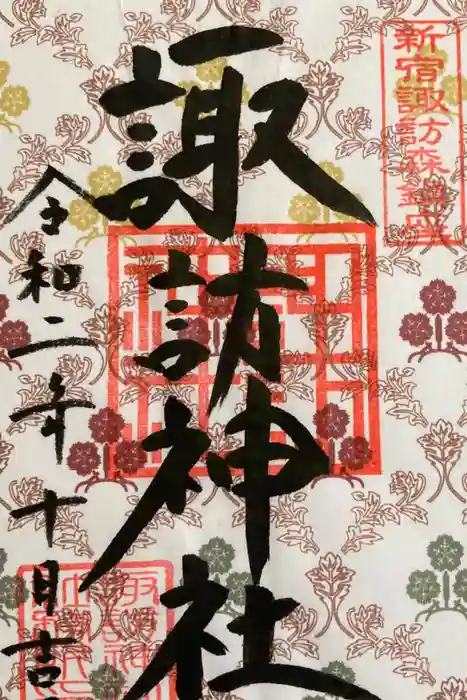 新宿諏訪森鎮座
諏訪神社
令和二年十月吉